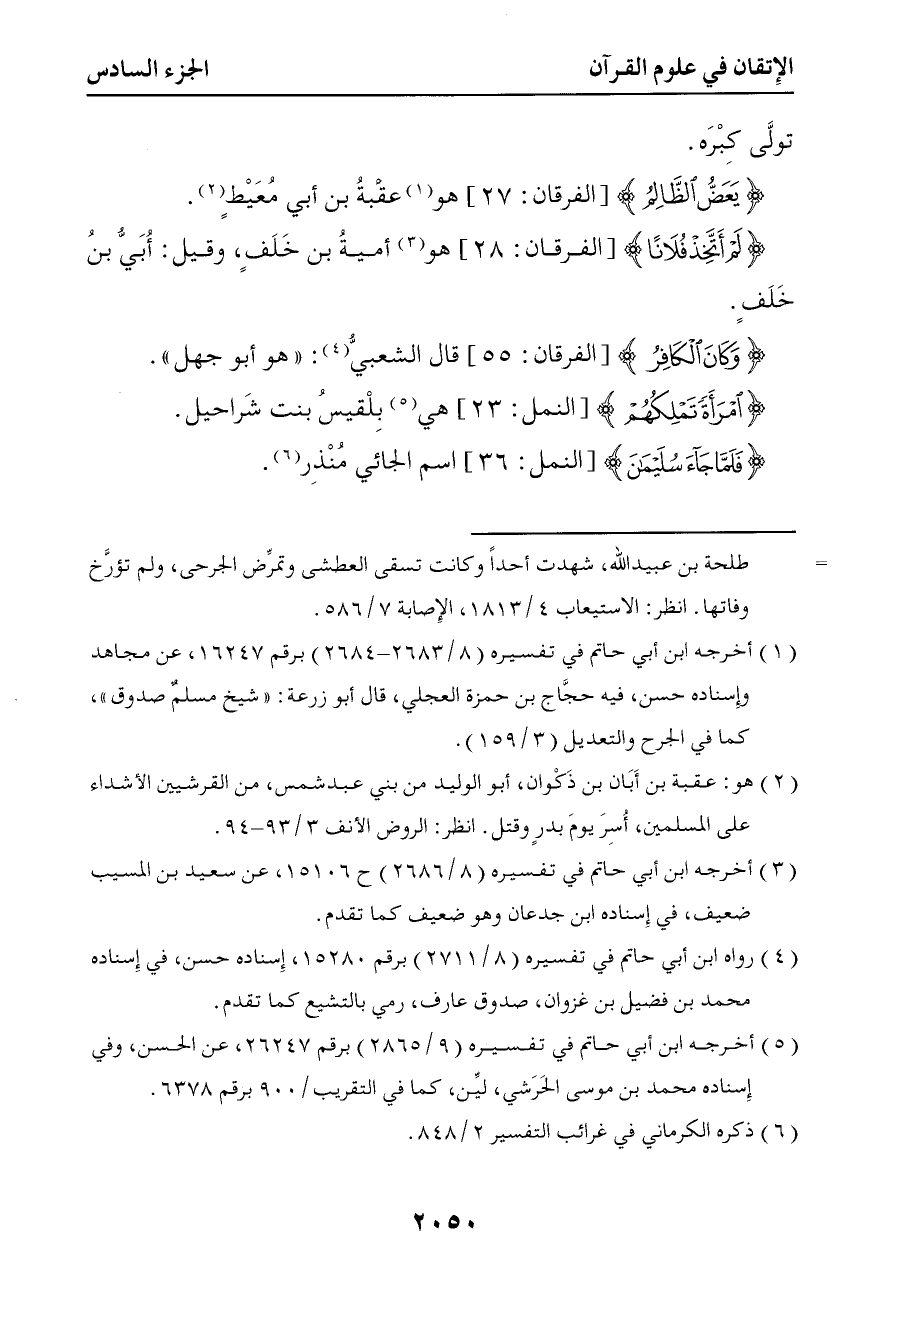 الإتقان في علوم القرآن
الجزء السادس
تولَّى كِبْرَه .
﴿ يَعَضُّ ٱلظَّالِمُ ﴾ [ الفرقان : ٢٧ ] هو(١) عقبْةُ بن أبي مُعَيْطٍ(٢).
﴿ لَمْ أَتَّخِذْ فُلَانًا ﴾ [ الفرقان : ٢٨ ] هو(٣) أميةُ بن خَلَفٍ، وقيل : أُبَيُّ بنُ
خَلَفٍ .
﴿ وَكَانَ ٱلْكَافِرُ ﴾ [ الفرقان : ٥٥ ] قال الشعبيُّ(٤): « هو أبو جهل ».
﴿ ٱمْرَأَةً تَمْلِكُهُمْ ﴾ [ النمل : ٢٣ ] هي(٥) بِلْقيسُ بنت شَراحيل .
﴿ فَلَمَّا جَآءَ سُلَيْمَٰنَ ﴾ [ النمل : ٣٦ ] اسم الجائي مُنْذِر(٦).
= طلحة بن عبيدالله، شهدت أحداً وكانت تسقى العطشى وتمرِّض الجرحى، ولم تؤرَّخ
وفاتها . انظر : الاستيعاب ٤/ ١٨١٣، الإصابة ٧/ ٥٨٦ .
(١) أخرجه ابن أبي حاتم في تفسيره (٨/ ٢٦٨٣-٢٦٨٤) برقم ١٦٢٤٧، عن مجاهد
وإسناده حسن، فيه حجَّاج بن حمزة العجلي، قال أبو زرعة : « شيخ مسلمٌ صدوق »،
كما في الجرح والتعديل (٣/ ١٥٩).
(٢) هو : عقبة بن أَبَان بن ذَكْوان، أبو الوليد من بني عبدشمس، من القرشيين الأشداء
على المسلمين، أُسِرَ يومَ بدرٍ وقتل . انظر : الروض الأنف ٣/ ٩٣-٩٤ .
(٣) أخرجه ابن أبي حاتم في تفسيره (٨/ ٢٦٨٦) ح ١٥١٠٦، عن سعيد بن المسيب
ضعيف، في إسناده ابن جدعان وهو ضعيف كما تقدم .
(٤) رواه ابن أبي حاتم في تفسيره (٨/ ٢٧١١) برقم ١٥٢٨٠، إسناده حسن، في إسناده
محمد بن فضيل بن غزوان، صدوق عارف، رمي بالتشيع كما تقدم .
(٥) أخرجه ابن أبي حاتم في تفسيره (٩/ ٢٨٦٥) برقم ٢٦٢٤٧، عن الحسن، وفي
إسناده محمد بن موسى الحَرَشي، ليِّن، كما في التقريب/ ٩٠٠ برقم ٦٣٧٨ .
(٦) ذكره الكرماني في غرائب التفسير ٢/ ٨٤٨ .
٢٠٥٠